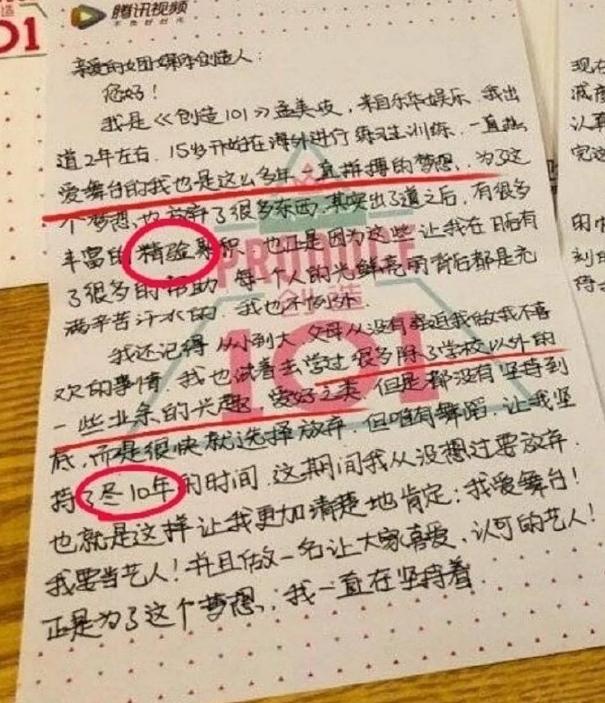 腾讯视频
不负好时光
101
亲爱的女团媒体创造人：
您好！
我是《创造101》孟美岐，来自乐华娱乐，我出
道2年左右，15岁开始在海外进行练习生训练，一直热
爱舞台的我也是这么多年一直拼搏的梦想，为了这
个梦想，也放弃了很多东西，其实出了道之后，有很多
丰富的精验累积，也正是因为这些让我在日后有
了很多的帮助，每一个人的光鲜亮丽背后都是充
满辛苦汗水的，我也不例外.
我还记得，从小到大，父母从没有逼迫我做我不喜
欢的事情，我也试着去学过很多除了学校以外的
一些业余的兴趣、爱好之类，但是都没有坚持到
底，而是很快就选择放弃，但唯有舞蹈，让我坚
持了尽10年的时间，这期间我从没想过要放弃.
也就是这样让我更加清楚地肯定：我爱舞台！
我要当艺人！并且做一名让大家喜爱、认可的艺人！
正是为了这个梦想，我一直在坚持着
PRODUCE
创造
101
现在
减肥
认真
完这
刻的